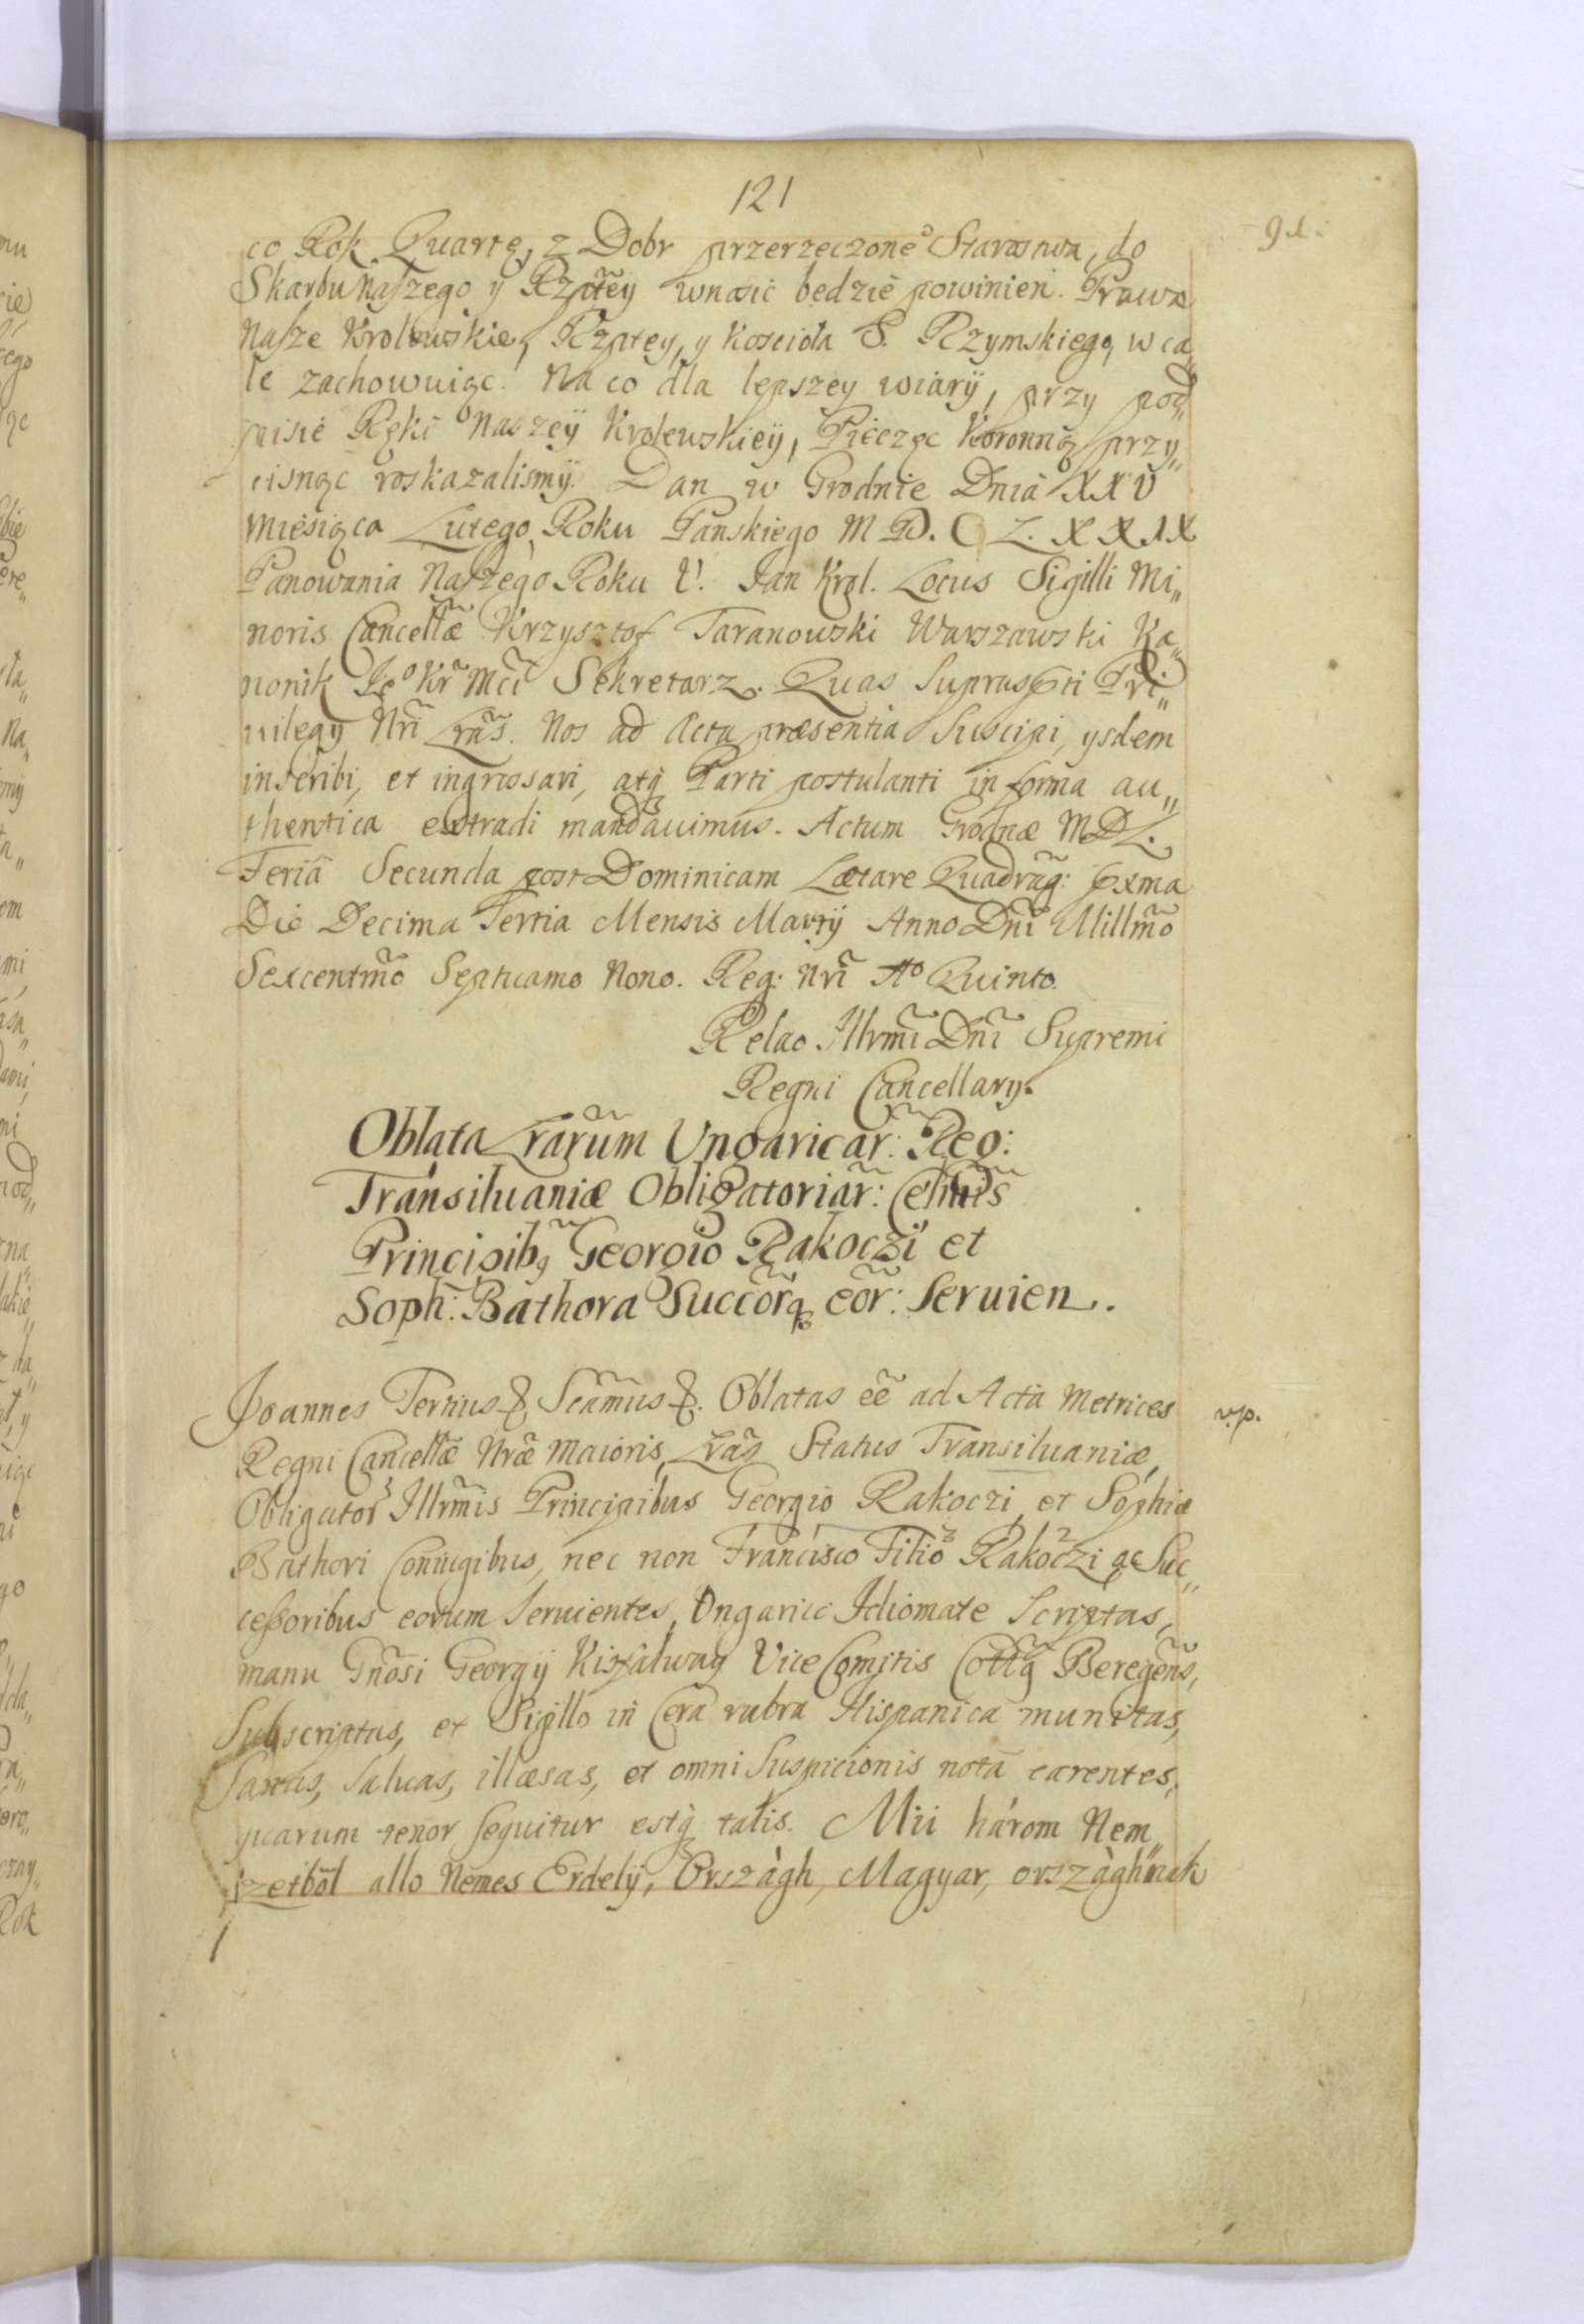 121
co Rok Quartę, z Dobr przerzeczoneo Starostwa, do
Skarbu naszego y Rzptey wnosić bedzie powinien. Prawa
nasze Krolewskie, Rzptey, y Koscioła S. Rzymskiego, w ca„
le zachowuiąc. Na co dla lepszey wiary, przy pod„
pisie Ręki Naszey Krolewskiey, Pieczęc Koronną przy„
cisnąc roskazalismy. Dan w Grodnie Dnia XXV
Miesiąca Lutego, Roku Panskiego M D. C L. X X I X
Panowania Naszego Roku V. Jan Krol. Locus Sigilli Mi„
noris Cancellæ Krzysztof Taranowski Warszawski Ka„
nonik Jeo Kr Mci Sekretarz. Quas Suprasčti Pri„
uilegy Nri Lras. Nos ad Acta præsentia Suscipi, ysdem
inseribi, et ingrossari, atq Parti postulanti in forma au„
thentica extradi mandauimus. Actum Grodnæ
Feria Secunda post Dominicam Lætare Quadrag:
Die Decima Tertia Mensis Martij Anno Dni Millmo
Sexcentmo Septuamo Nono. Reg: Nri Ao Quinto.
Relao Illrmi Dni Supremi
Regni Cancellary.
Oblata Lrarum Ungaricar: Reg:
Transiluaniæ Obligatoriar: Celmis
Principibq Georgio Rakoczi et
Soph: Bathora Succorq eor: Seruien.
Joannes Tertius &, Scamus &. Oblatas eē ad Acta Metrices
v.p.
Regni Cancellæ Nræ Maioris, Lras Status Transiluaniæ,
Obligator Illrmis Principibus Georgio Rakoczi, et Sophiæ
Bathori Coniugibus, nec non Francisco Filio Rakoczi ac Suc„
cessoribus eorum Seruientes, Ungarico Idiomate Scriptas,
manu Gnosi Georgij Kisfalwag Vice Comitis Cottq Beregens,
Subscriptas, et Sigillo in Cera rubra Hispanica munitas,
Sanas, Saluas, illæsas, et omni Suspicionis nota carentes,
quarum tenor sequitur estq talis. Mii három Nem„
zetböl allo Nemes Erdely, Országh, Magyar, országhnak